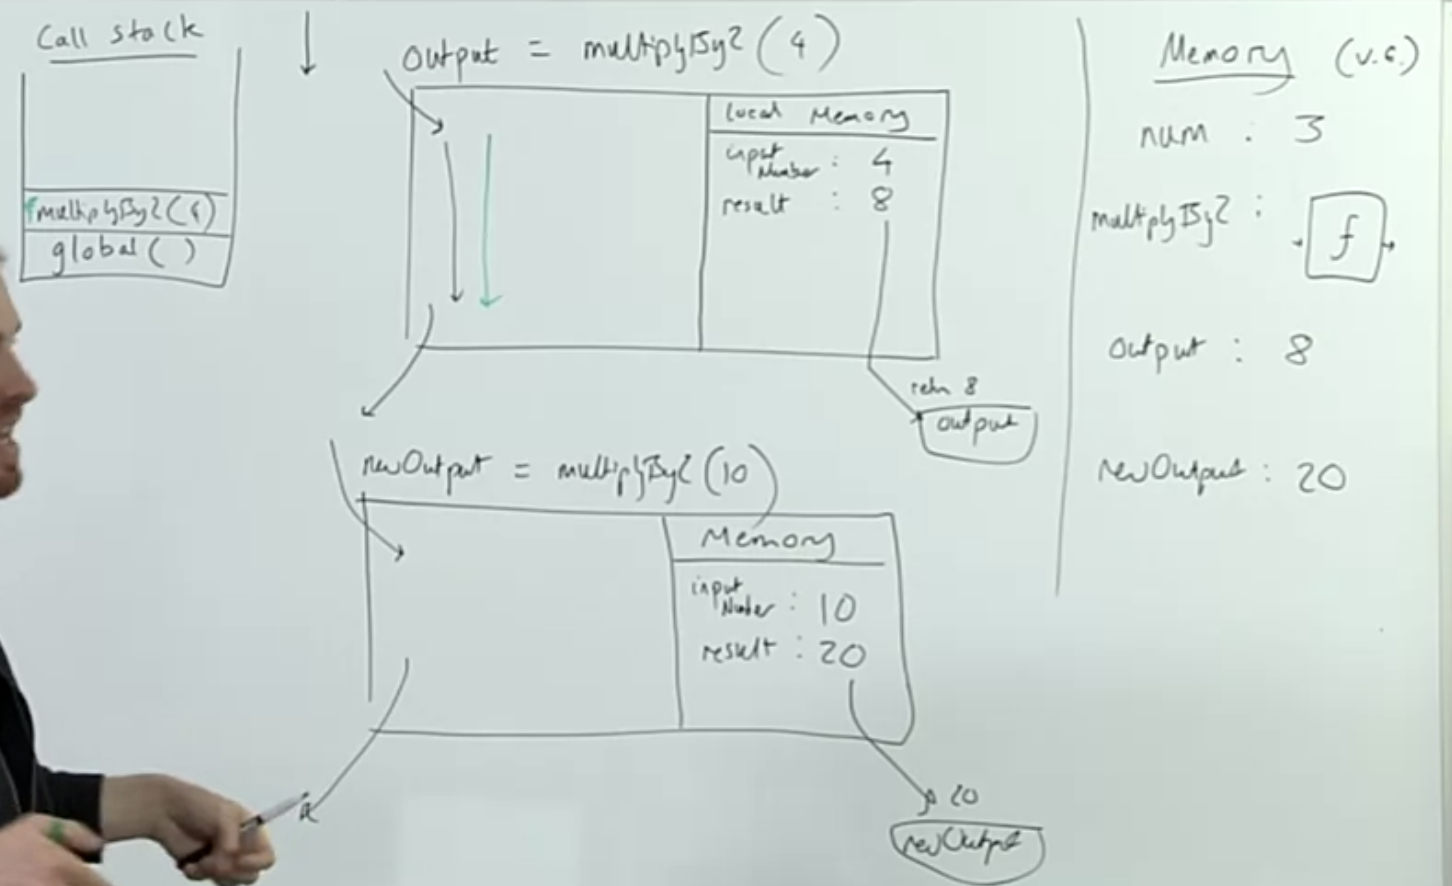 Call stack
multiplyBy2(4)
global( )
output = multiplyBy2(4)
local Memory
input Number : 4
result : 8
retn 8
output
newOutput = multiplyBy2(10)
Memory
input Number : 10
result : 20
20
newOutput
Memory
num : 3
multiplyBy2 : f
output : 8
newOutput : 20